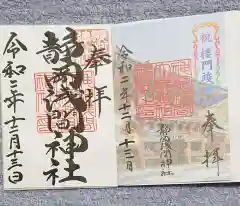 奉拝
静岡浅間神社
令和二年十二月十三日
祝楼門竣工
奉拝
静岡浅間神社
令和二年十二月十三日